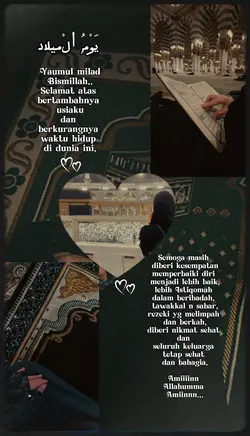 يَوْمُ الْمِيلَاد
Yaumul milad
Bismillah..
Selamat atas
bertambahnya
usiaku
dan
berkurangnya
waktu hidup
di dunia ini.
Semoga masih
diberi kesempatan
memperbaiki diri
menjadi lebih baik,
lebih Istiqomah
dalam beribadah,
tawakkal n sabar,
rezeki yg melimpah
dan berkah,
diberi nikmat sehat
dan
seluruh keluarga
tetap sehat
dan bahagia.
Amiiinn
Allahumma
Amiinnn...